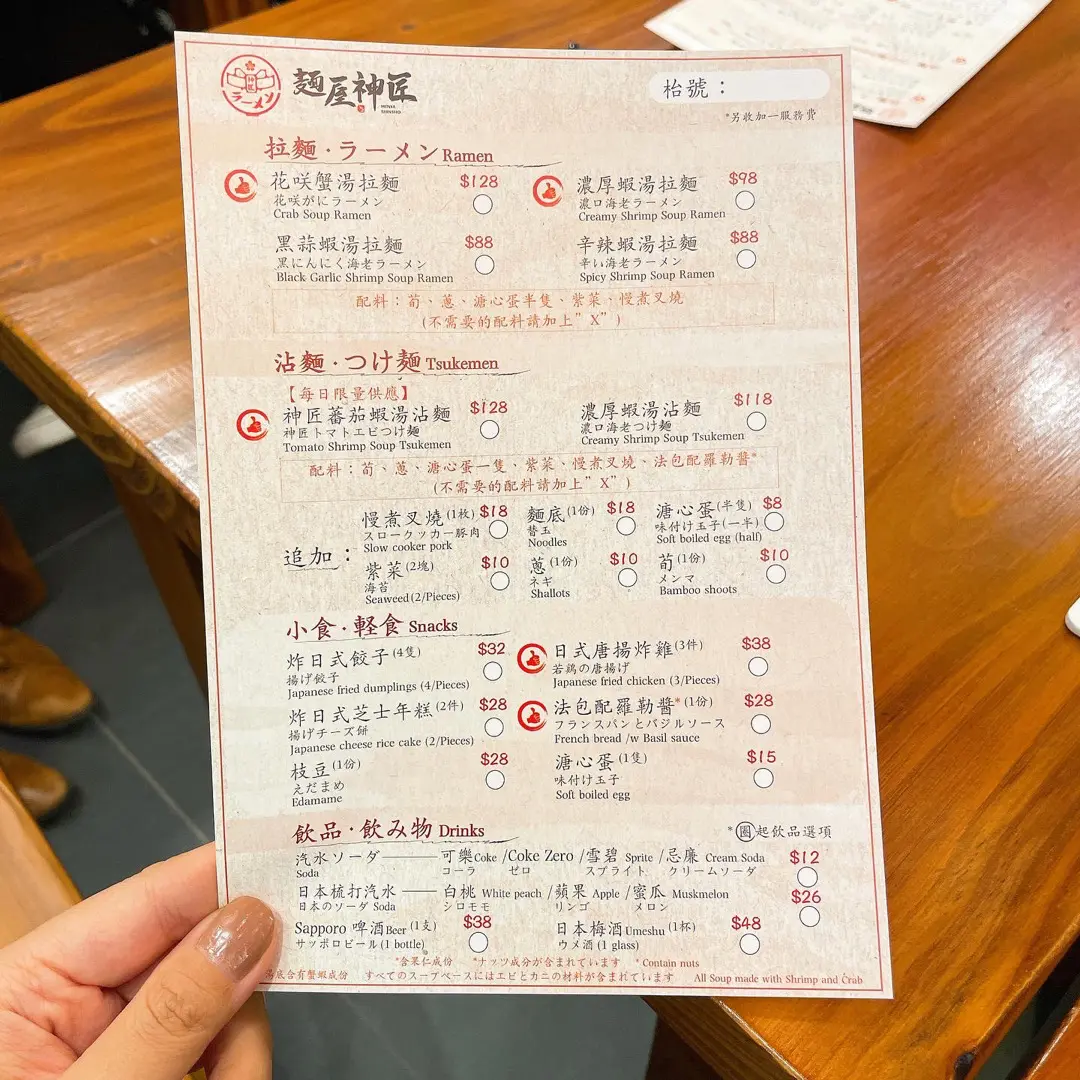 ラーメン
麵屋神匠
枱號：
*另收加一服務費
拉麵・ラーメン Ramen
花咲蟹湯拉麵 $128
花咲がにラーメン
Crab Soup Ramen
濃厚蝦湯拉麵 $98
濃口海老ラーメン
Creamy Shrimp Soup Ramen
黑蒜蝦湯拉麵 $88
黒にんにく海老ラーメン
Black Garlic Shrimp Soup Ramen
辛辣蝦湯拉麵 $88
辛い海老ラーメン
Spicy Shrimp Soup Ramen
配料：荀、蔥、溏心蛋半隻、紫菜、慢煮叉燒
(不需要的配料請加上”X”)
沾麵・つけ麺 Tsukemen
【每日限量供應】
神匠蕃茄蝦湯沾麵 $128
神匠トマトエビつけ麺
Tomato Shrimp Soup Tsukemen
濃厚蝦湯沾麵 $118
濃口海老つけ麺
Creamy Shrimp Soup Tsukemen
配料：荀、蔥、溏心蛋一隻、紫菜、慢煮叉燒、法包配羅勒醬*
(不需要的配料請加上”X”)
追加：
慢煮叉燒(1枚) $18
スロークッカー豚肉
Slow cooker pork
麵底(1份) $18
替玉
Noodles
溏心蛋(半隻) $8
味付け玉子(一半)
Soft boiled egg (half)
紫菜(2塊) $10
海苔
Seaweed (2/Pieces)
蔥(1份) $10
ネギ
Shallots
荀(1份) $10
メンマ
Bamboo shoots
小食・軽食 Snacks
炸日式餃子(4隻) $32
揚げ餃子
Japanese fried dumplings (4/Pieces)
日式唐揚炸雞(3件) $38
若鶏の唐揚げ
Japanese fried chicken (3/Pieces)
炸日式芝士年糕(2件) $28
揚げチーズ餅
Japanese cheese rice cake (2/Pieces)
法包配羅勒醬*(1份) $28
フランスパンとバジルソース
French bread /w Basil sauce
枝豆(1份) $28
えだまめ
Edamame
溏心蛋(1隻) $15
味付け玉子
Soft boiled egg
飲品・飲み物 Drinks
*圈起飲品選項
汽水ソーダ——可樂Coke /Coke Zero /雪碧 Sprite /忌廉 Cream Soda $12
Soda コーラ ゼロ スプライト クリームソーダ
日本梳打汽水——白桃 White peach /蘋果 Apple /蜜瓜 Muskmelon $26
日本のソーダ Soda シロモモ リンゴ メロン
Sapporo 啤酒Beer (1支) $38
サッポロビール(1 bottle)
日本梅酒Umeshu (1杯) $48
ウメ酒 (1 glass)
*含果仁成份 *ナッツ成分が含まれています *Contain nuts
湯底含有蟹蝦成份 すべてのスープベースにはエビとカニの材料が含まれています All Soup made with Shrimp and Crab